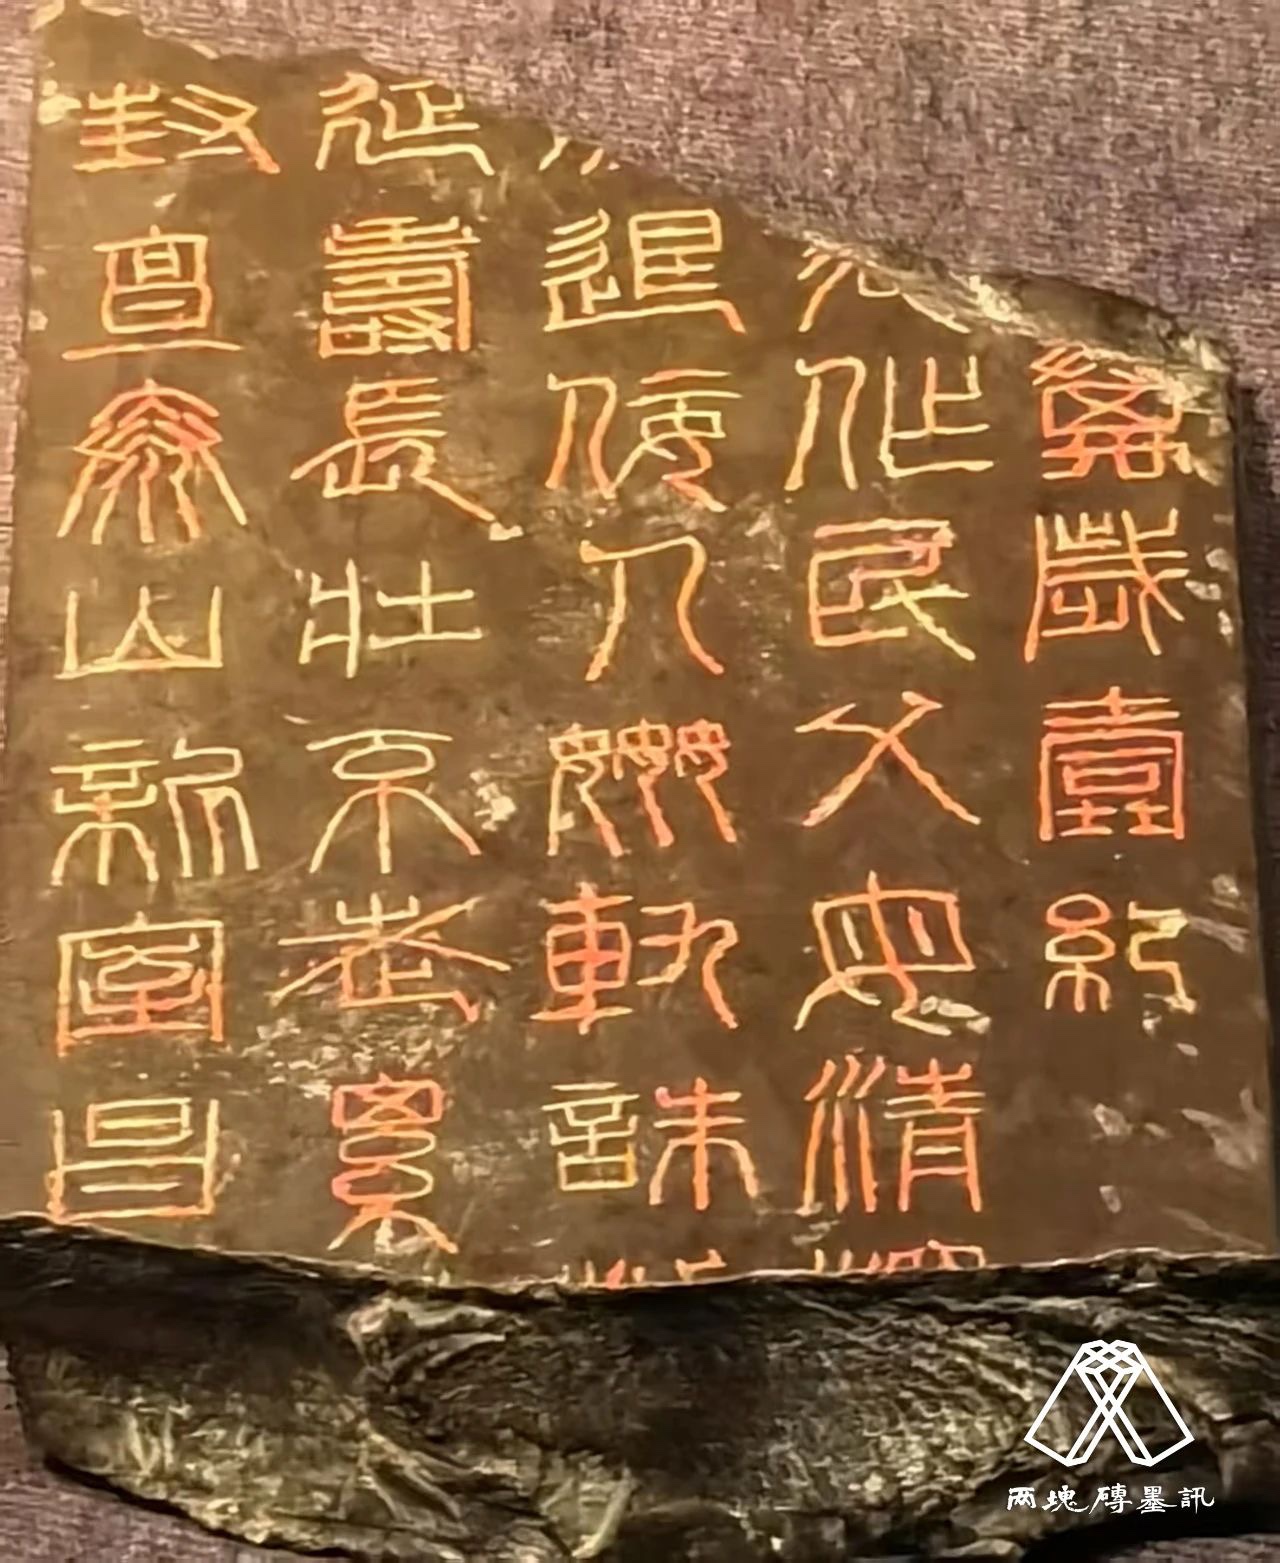 萬歲壹紀
作民父母清
退佞人姦軌誅
延壽長壯不老累
封亶泰山新室昌
两塊磚墨訊